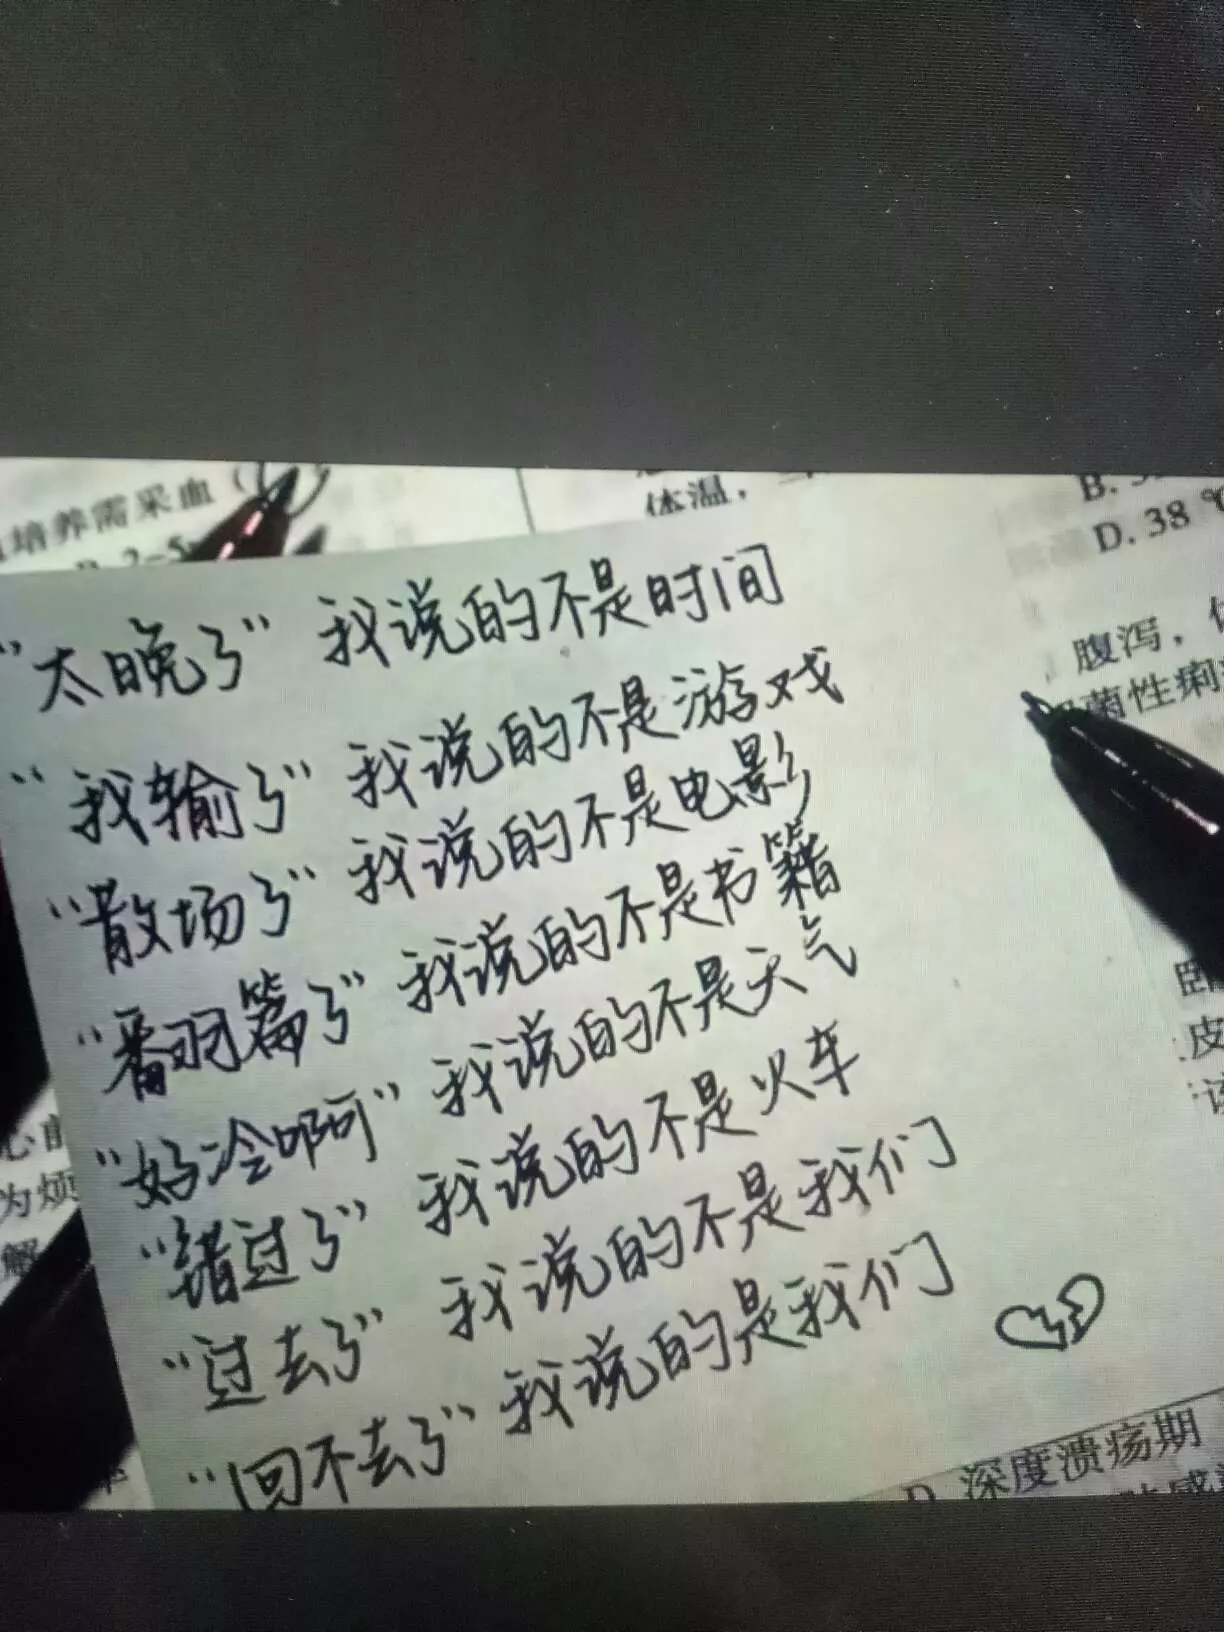 培养需采血
体温，
D. 38 ℃
腹泻，
菌性痢
“太晚了” 我说的不是时间
“我输了” 我说的不是游戏
“散场了” 我说的不是电影
“翻篇了” 我说的不是书籍
“好冷啊” 我说的不是天气
“错过了” 我说的不是火车
“过去了” 我说的不是我们
“回不去了” 我说的是我们
皮
为烦
解
D. 深度溃疡期